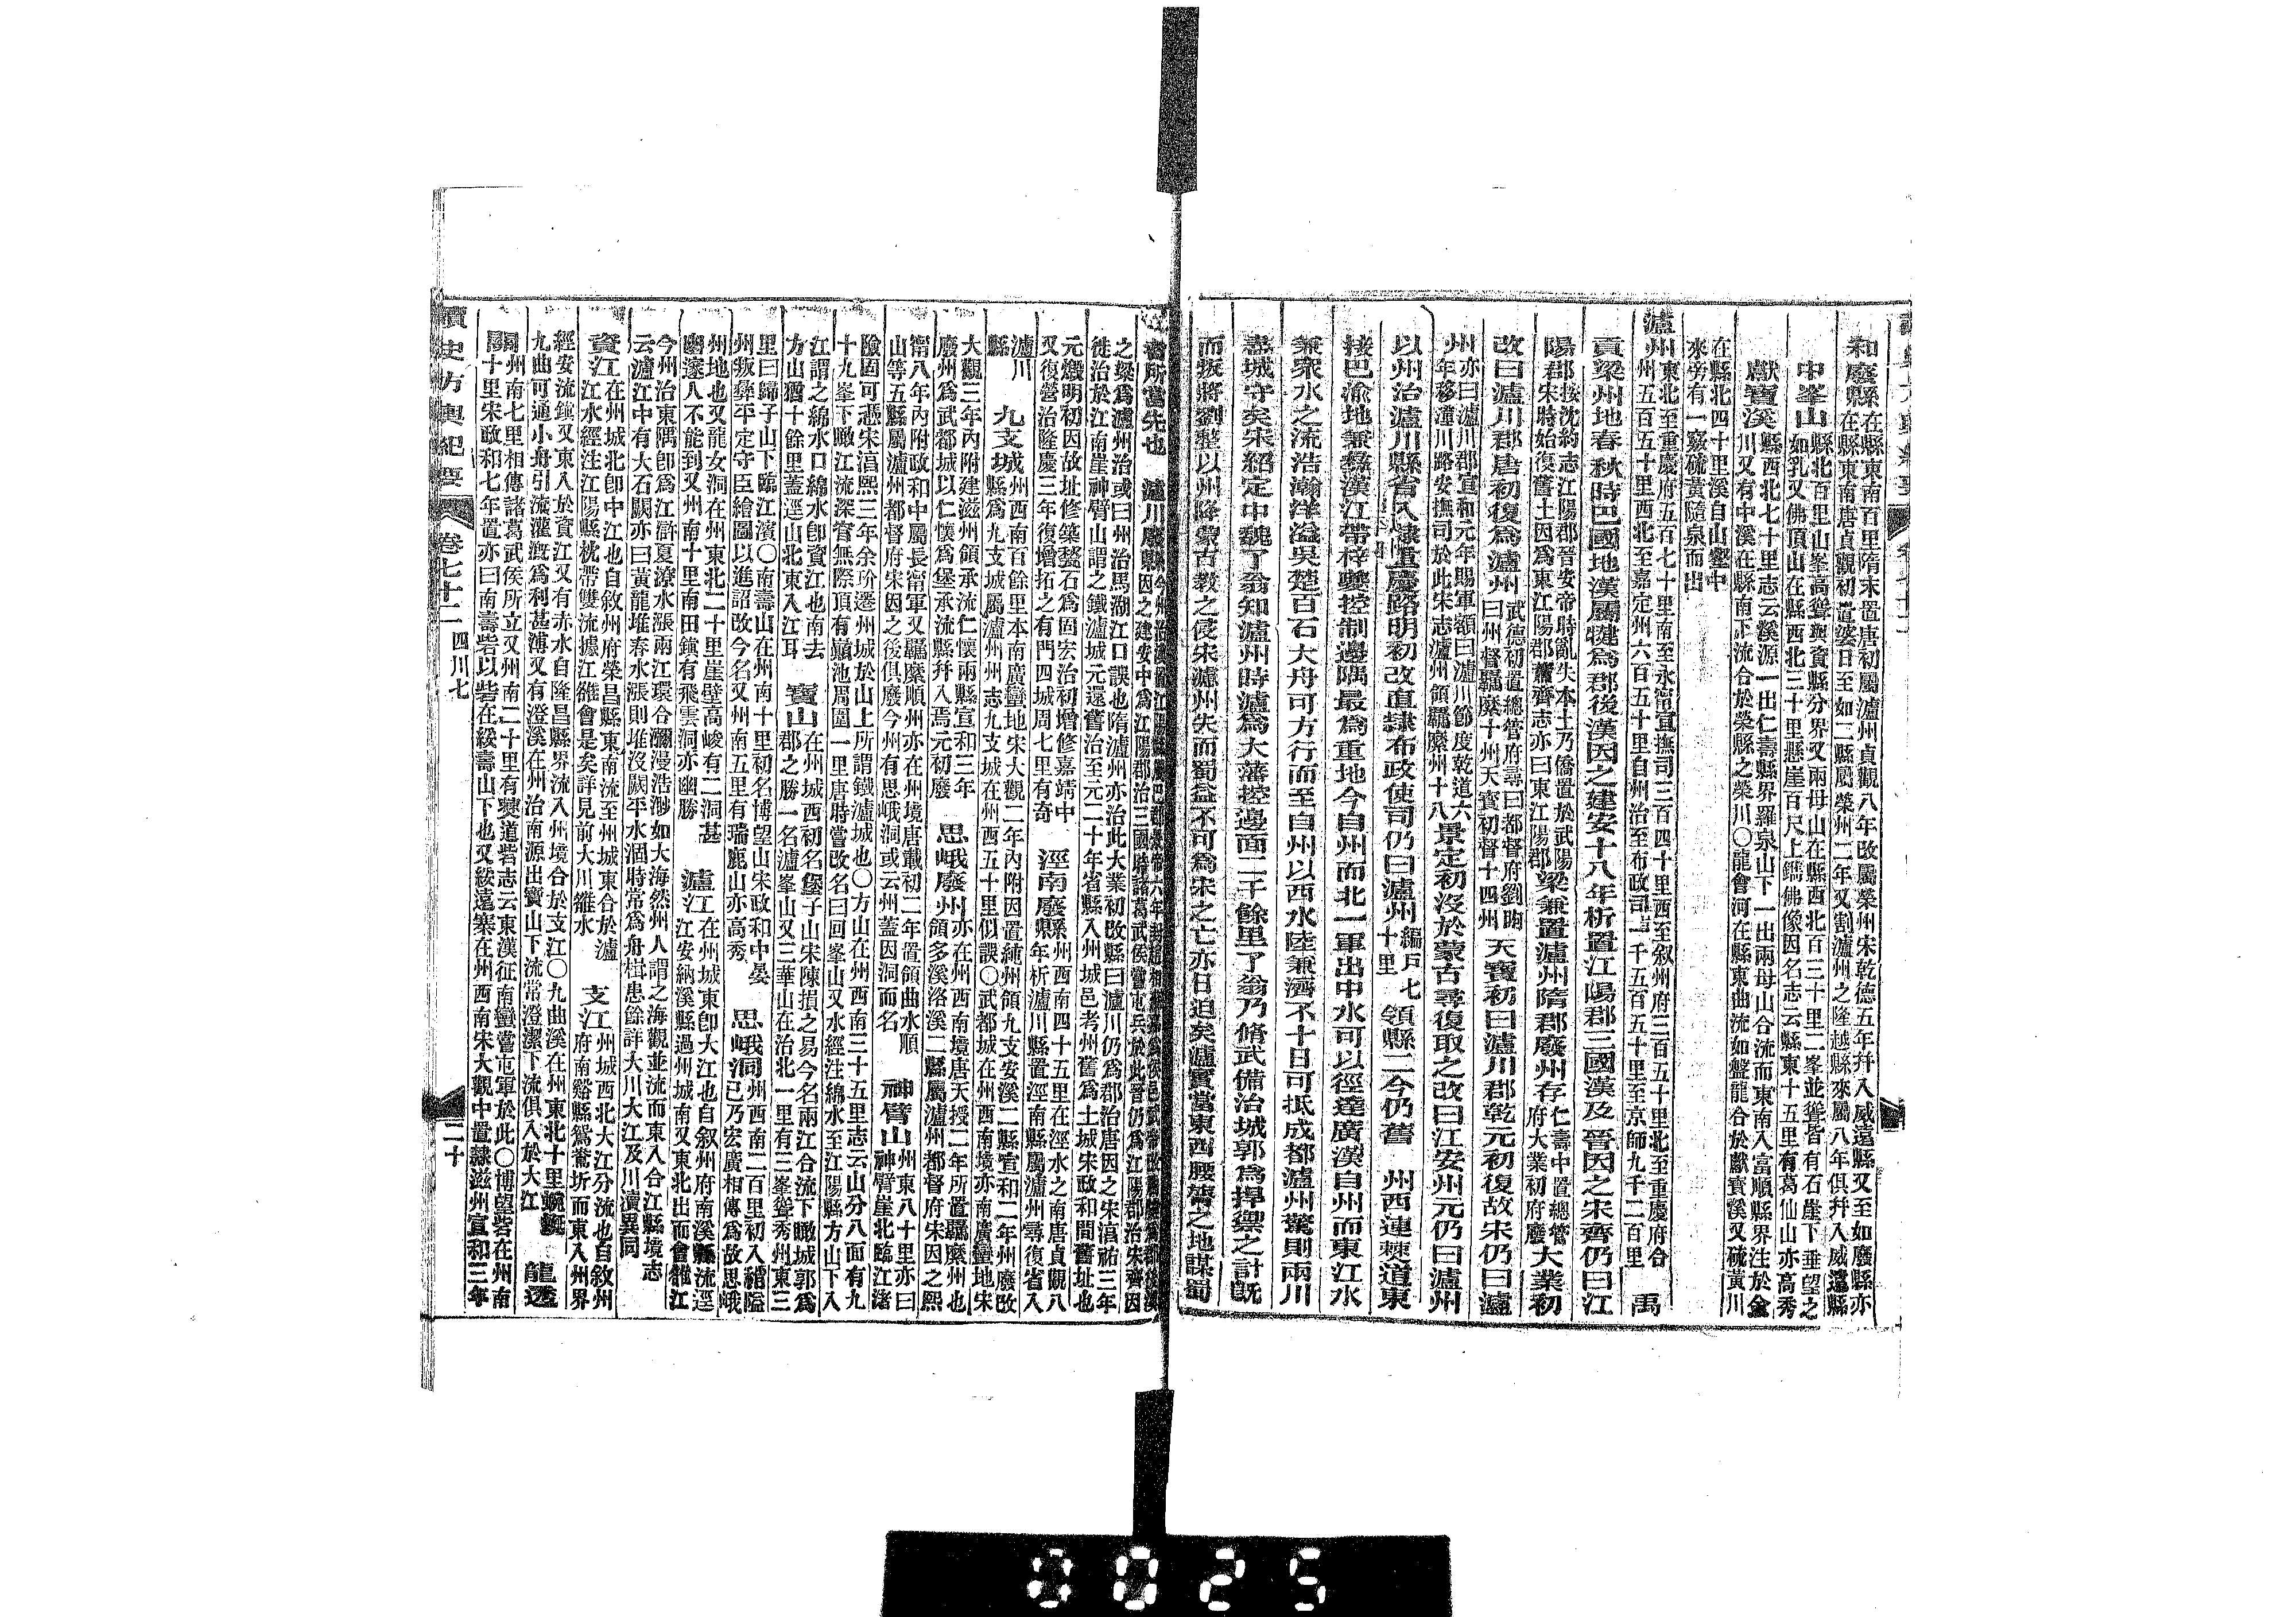 和廢縣在縣東南百里隋末置唐初屬瀘州貞觀八年改屬榮州宋乾德五年幷入威遠縣又至如廢縣亦
在縣東南唐貞觀初置婆日至如二縣屬榮州二年又割瀘州之隆越縣來屬八年俱幷入威遠縣
中峯山縣北百里山峯高聳與資縣分界又兩母山在縣西北百三十里二峯並聳皆有石崖下垂望之
如乳又佛頂山在縣西北三十里懸崖百尺上鐫佛像因名志云縣東十五里有葛仙山亦高秀
獻寶溪縣西北七十里志云溪源一出仁壽縣界羅泉山下一出兩母山合流而東南入富順縣界注於金
川又有中溪在縣南下流合於榮縣之榮川〇龍會河在縣東曲流如盤龍合於獻寶溪又硫黃川
在縣北四十里溪自山壑中
來旁有一竅硫黃隨泉而出
瀘州東北至重慶府五百七十里南至永寧宣撫司三百四十里西至敘州府三百五十里北至重慶府合
州五百五十里西北至嘉定州六百五十里自州治至布政司一千五百五十里至京師九千二百里
禹
貢梁州地春秋時巴國地漢屬犍爲郡後漢因之建安十八年析置江陽郡三國漢及晉因之宋齊仍曰江
陽郡按沈約志江陽郡晉安帝時亂失本土乃僑置於武陽
郡君宋時始復舊土因爲東江陽郡蕭齊志亦曰東江陽郡
梁兼置瀘州隋郡廢州存仁壽中置總管
府大業初府廢
大業初
改曰瀘川郡唐初復爲瀘州武德初置總管府尋曰都督府劉昫
曰州督羈縻十州天寶初督十四州
天寶初曰瀘川郡乾元初復故宋仍曰瀘
州亦曰瀘川郡宣和元年賜軍額曰瀘川節度乾道六
年移潼川路安撫司於此宋志瀘州領羈縻州十八
景定初沒於蒙古尋復取之改曰江安州元仍曰瀘州
以州治瀘川縣省入隸重慶路明初改直隸布政使司仍曰瀘州編戶七
十里
領縣二今仍舊
州西連僰道東
接巴渝地兼彝漢江帶梓夔控制邊隅最爲重地今自州而北一軍出中水可以徑達廣漢自州而東江水
兼衆水之流浩瀚洋溢吳楚百石大舟可方行而至自州以西水陸兼濟不十日可抵成都瀘州驚則兩川
憑城守矣宋紹定中魏了翁知瀘州時瀘爲大藩控邊面二千餘里了翁乃脩武備治城郭爲捍禦之計旣
而叛將劉整以州降蒙古教之侵宋瀘州失而蜀益不可爲宋之亡亦日迫矣瀘實當東西腰膂之地謀蜀
者所當先也
瀘川廢縣今州治漢置江陽縣屬巴郡景帝六年封趙相蘇嘉爲侯邑武帝改屬犍爲郡後漢
因之建安中爲江陽郡治三國時諸葛武侯嘗屯兵於此晉仍爲江陽郡治宋齊因
之梁爲瀘州治或曰州治馬湖江口誤也隋瀘州亦治此大業初改縣曰瀘川仍爲郡治唐因之宋淳祐三年
徙治於江南崖神臂山謂之鐵瀘城元還舊治至元二十年省縣入州城邑考州舊爲土城宋政和間舊址也
元燬明初因故址修築甃石爲固宏治初增修嘉靖中
又復營治隆慶三年復增拓之有門四城周七里有奇
涇南廢縣州西南四十五里在涇水之南唐貞觀八
年析瀘川縣置涇南縣屬瀘州尋復省入
瀘川
縣
九支城州西南百餘里本南廣蠻地宋大觀二年內附因置純州領九支安溪二縣宣和二年州廢改
縣爲九支城屬瀘州州志九支城在州西五十里似誤〇武都城在州西南境亦南廣蠻地宋
大觀三年內附建滋州領承流仁懷兩縣宣和三年
廢州爲武都城以仁懷爲堡承流縣幷入焉元初廢
思峨廢州亦在州西南境唐天授二年所置羈縻州也
領多溪洛溪二縣屬瀘州都督府宋因之熙
甯八年內附政和中屬長甯軍又羈縻順州亦在州境唐載初二年置領曲水順
山等五縣屬瀘州都督府宋因之後俱廢今州有思峨洞或云州蓋因洞而名
神臂山州東八十里亦曰
神臂崖北臨江渚
險固可憑宋淳熙三年余玠遷州城於山上所謂鐵瀘城也〇方山在州西南三十五里志云山分八面有九
十九峯下瞰江流深窅無際頂有巔池周圍一里唐時嘗改名曰回峯山又水經注綿水至江陽縣方山下入
江謂之綿水口綿水卽資江也南去
方山猶十餘里蓋逕山北東入江耳
寶山在州城西初名堡子山宋陳損之易今名兩江合流下瞰城郭爲
郡之勝一名瀘峯山又三華山在治北一里有三峯聳秀州東三
里曰歸子山下臨江濱〇南壽山在州南十里初名博望山宋政和中晏
州叛彝平定守臣繪圖以進詔改今名又州南五里有瑞鹿山亦高秀
思峨洞州西南二百里初入稍隘
已乃宏廣相傳爲故思峨
州地也又龍女洞在州東北二十里崖壁高峻有二洞甚
幽邃人不能到又州南十里南田鎭有飛雲洞亦幽勝
瀘江在州城東卽大江也自敘州府南溪縣流逕
江安納溪縣過州城南又東北出而會雒江
今州治東隅卽爲江滸夏潦水漲兩江環合瀰漫浩渺如大海然州人謂之海觀並流而東入合江縣境志
云瀘江中有大石闕亦曰黃龍堆春水漲則堆沒闕平水涸時常爲舟楫患餘詳大川大江及川瀆異同
資江在州城北卽中江也自敘州府榮昌縣東南流至州城東合於瀘
江水經注江陽縣枕帶雙流據江雒會是矣詳見前大川雒水
支江州城西北大江分流也自敘州
府南谿縣鴛鴦圻而東入州界
經安流鎭又東入於資江又有赤水自隆昌縣界流入州境合於支江〇九曲溪在州東北十里蜿蜒
九曲可通小舟引流灌溉爲利甚溥又有澄溪在州治南源出寶山下流常澄潔下流俱入於大江
龍透
關州南七里相傳諸葛武侯所立又州南二十里有僰道砦志云東漢征南蠻嘗屯軍於此〇博望砦在州南
十里宋政和七年置亦曰南壽砦以砦在綏壽山下也又綏遠寨在州西南宋大觀中置隸滋州宣和三年
讀史方輿紀要
卷七十二
四川七
二十
0025